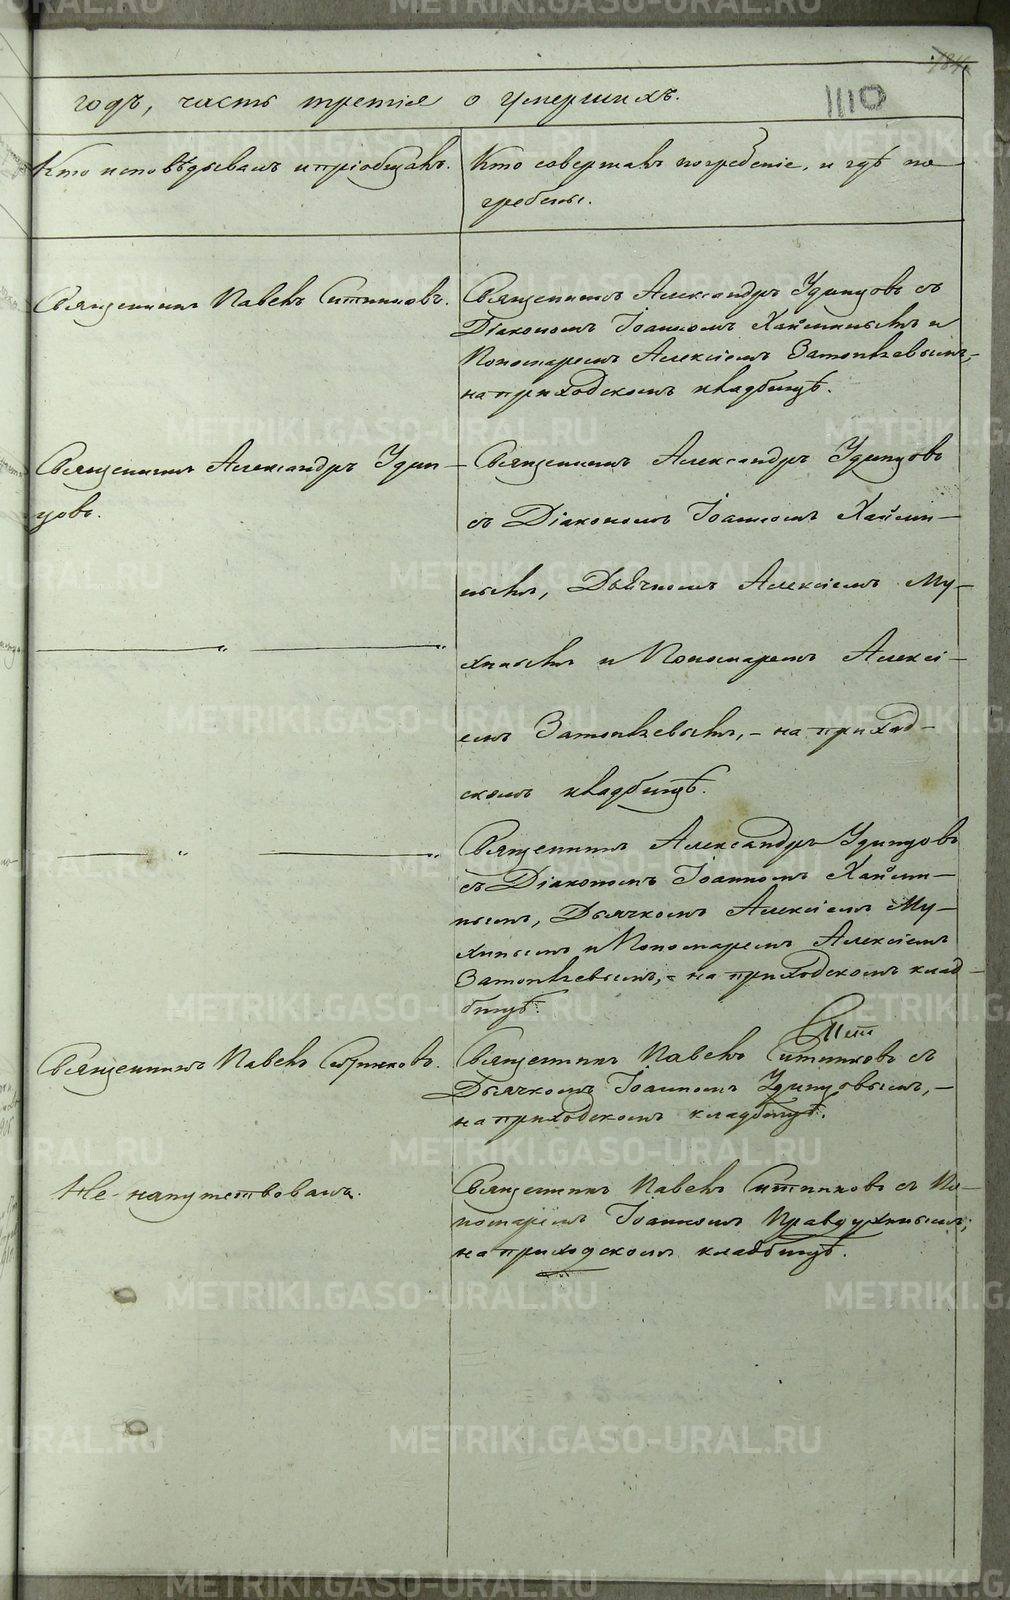 годъ, часть третія о умершихъ.
1110
Кто исповѣдывалъ и пріобщалъ.
Кто совершалъ погребеніе, и гдѣ по-
гребены.
Священникъ Павелъ Ситниковъ.
Священникъ Александръ Удинцовъ съ
Діакономъ Іоанномъ Хайминымъ и
Пономаремъ Алексіемъ
на приходскомъ кладбищѣ.
Священникъ Александръ Удин-
цовъ.
Священникъ Александръ Удинцовъ
съ Діакономъ Іоанномъ Хайми-
нымъ, Дьячкомъ Алексіемъ Му-
хинымъ и Пономаремъ Алексі-
емъ на приход-
скомъ кладбищѣ.
Священникъ Александръ Удинцовъ
съ Діакономъ Іоанномъ Хайми-
нымъ, Дьячкомъ Алексіемъ Му-
хинымъ и Пономаремъ Алексіемъ
на приходскомъ клад-
бищѣ.
Священникъ Павелъ Ситниковъ.
Сит
Священникъ Павелъ Ситниковъ съ
Дьячкомъ Іоанномъ Удинцовымъ, -
на приходскомъ кладбищѣ.
Не напутствованъ.
Священникъ Павелъ Ситниковъ съ По-
номарёмъ Іоанномъ Правдухинымъ;
на приходскомъ кладбищѣ.
METRIKI.GASO-URAL.RU